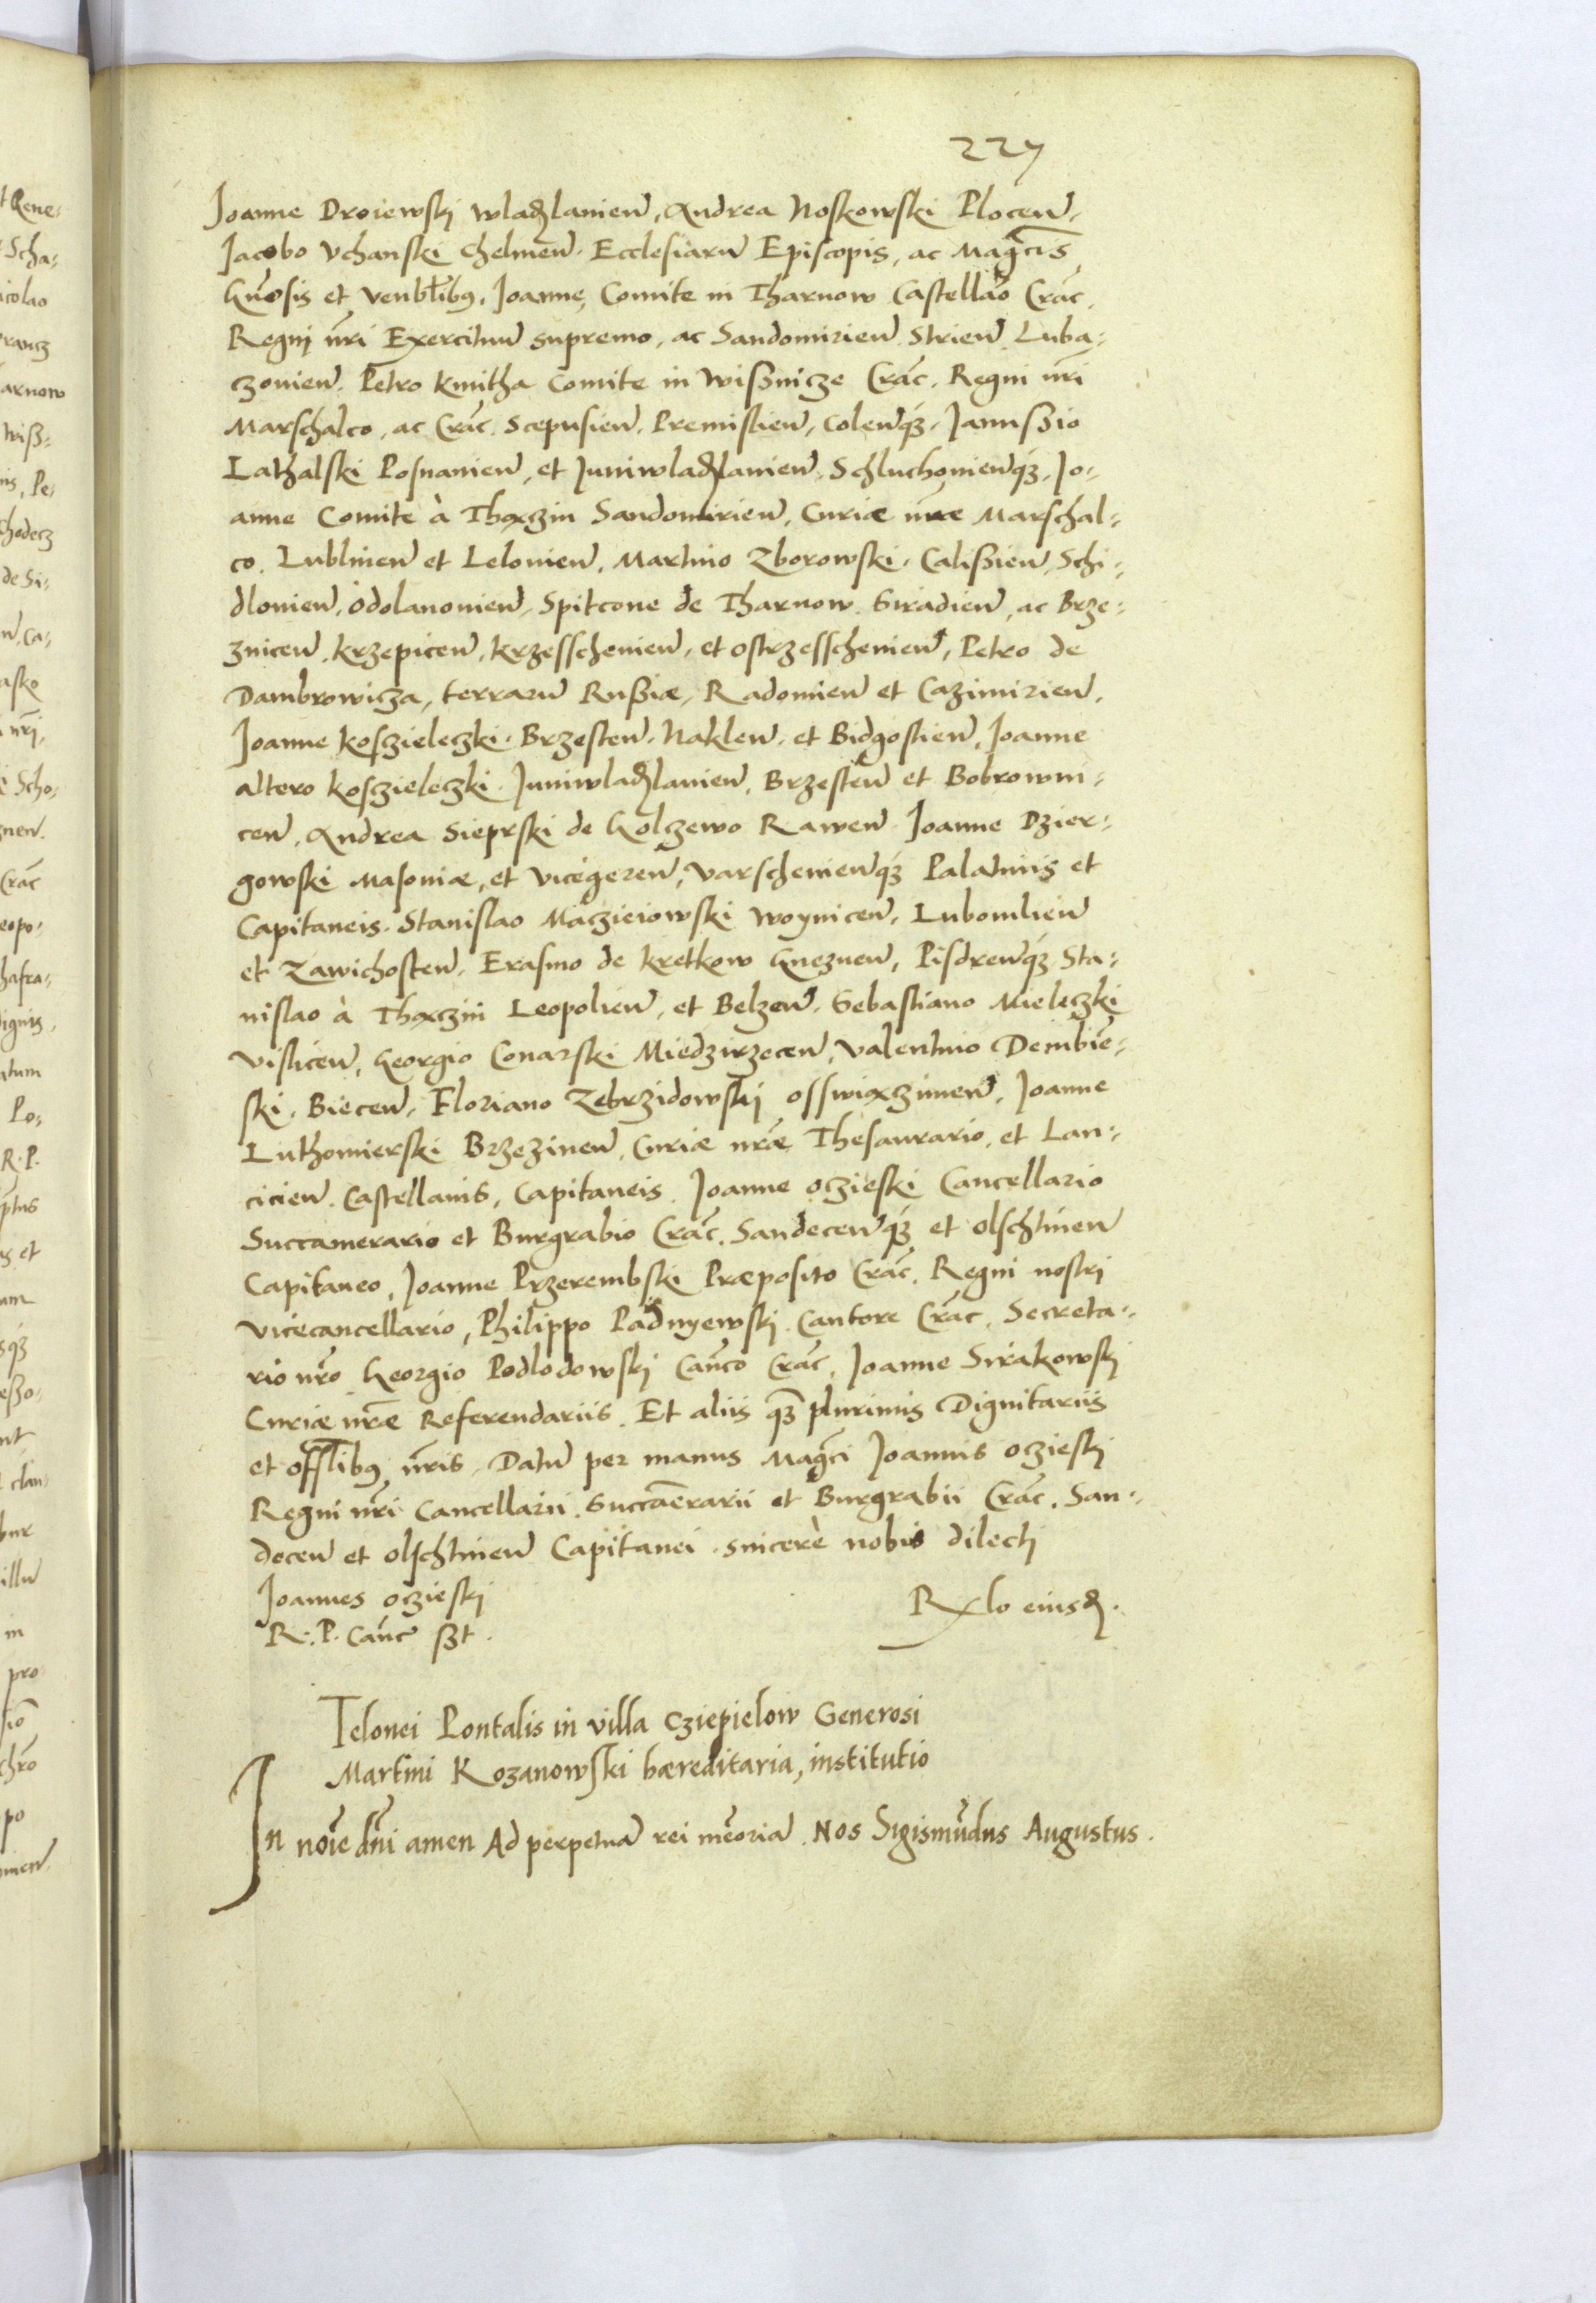 227
Joanne Droiewski Wladislavien̄, Andrea Noskowski Plocen̄,
Jacobo Vchanski Chelmen̄. Ecclesiarū Episcopis, ac Magc̄is
Gn̄osis et Venbl̄ibꝰ, Joanne Comite in Tharnow Castellāo Crac̄.
Regni nr̄i Exercituū supremo, ac Sandomirien̄. Strien̄. Luba-
czovien̄. Petro Kmitha Comite in Wißnicze Crac̄. Regni nr̄i
Marschalco, ac Crac̄. Scepusien̄. Premislien̄, Colen̄qꝫ. Janußio
Lathalski Posnanien̄, et Juniwladislavien̄. Schluchovien̄qꝫ. Jo-
anne Comite à Thęczin Sandomirien̄, Curiæ nr̄æ Marschal-
co. Lublinen̄ et Lelovien̄. Martino Zborowski. Calißien̄, Schi-
dlovien̄, Odolanovien̄. Spitcone de Tharnow. Siradien̄, ac Brze-
znicen̄, Krzepicen̄, Krzesschovien̄, et Ostrzesschovien̄, Petro de
Dambrowicza, terrarū Rußiæ, Radomien̄ et Cazimirien̄.
Joanne Kosczieleczki. Brzesten̄. Naklen̄. et Bidgostien̄, Joanne
altero Kosczieleczki. Juniwladislavien̄, Brzesten̄ et Bobrowni-
cen̄, Andrea Sieprski de Golczewo Rawen̄ Joanne Dzier-
gowski Masoviæ, et Vicegeren̄, Varschevien̄qꝫ Palatinis et
Capitaneis. Stanislao Macziеiowski Woynicen̄, Lubomlien̄
et Zawichosten̄. Erasmo de Kretkow Gneznen̄, Pisdren̄qꝫ Sta-
nislao à Thęczin Leopolien̄, et Belzen̄. Sebastiano Mieleczki
Vislicen̄, Georgio Conarski Miedzirzecen̄, Valentino Dembie-
ski, Biecen̄, Floriano Zebrzidowski Osswięczimen̄, Joanne
Luthomierski Brzezinen̄, Curiæ nr̄æ Thesaurario, et Lan-
cicien̄. Castellanis, Capitaneis. Joanne Oczieski Cancellario
Succamerario et Burgrabio Crac̄. Sandecen̄qꝫ et Olschtinen̄
Capitaneo, Joanne Przerembski Præposito Crac̄. Regni nostri
Vicecancellario, Philippo Padnyewski. Cantore Crac̄, Secreta-
rio nr̄o Georgio Podlodowski Can̄co Crac̄, Joanne Sirakowski
Curiæ nr̄æ Referendariis. Et aliis qꝫ plurimis Dignitariis
et Offlībꝰ nr̄is. Datū per manus Magc̄i Joannis Oczieski
Regni nr̄i Cancellarii. Succam̄erarii et Burgrabii Crac̄. San-
decen̄ et Olschtinen̄ Capitanei. sincerè nobis dilecti
Joannes Oczieski
R. P. Canc̄ ßt.
Rĕlo eiusđ.
Telonei Pontalis in villa Cziepielow Generosi
Martini Kozanowski hæreditaria, institutio
In noīe dn̄i amen Ad perpetuā rei mēoriā. Nos Sigismūdus Augustus.